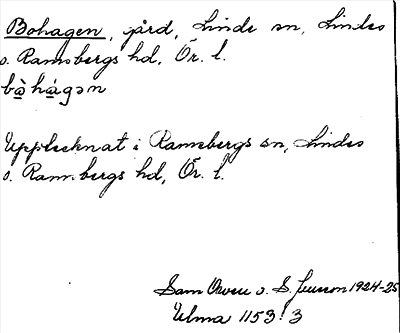 Bohagen, gård, Linde sn, Lindes
o. Ramsbergs hd, Ör. l.
bò̱ há̱gən
Upptecknat i Ramsbergs sn, Lindes
o. Ramsbergs hd, Ör. l.
Sam Owen o. S. Jeuson 1924-25
Ulma 1153:3